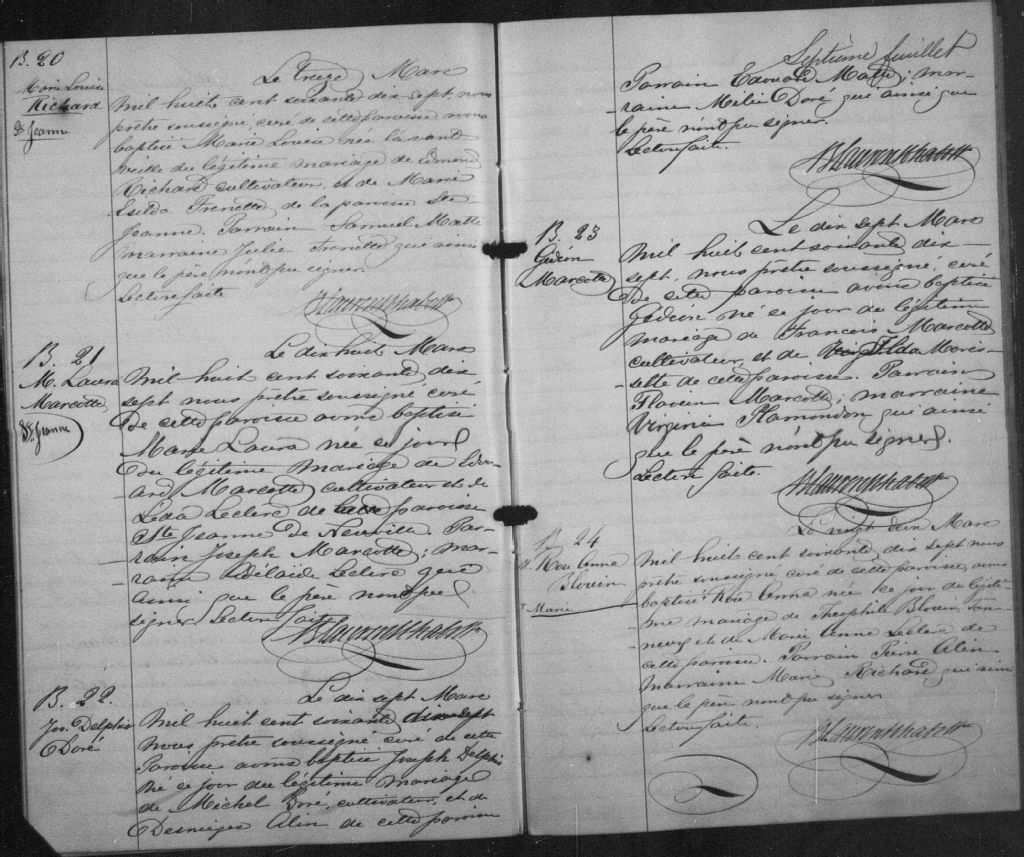 B. 20
Marie Louise
Richard
Ste Jeanne
Le treize Mars
Mil huit cent soixante dix-sept, nous
prêtre soussigné, curé de cette paroisse avons
baptisé Marie Louise née l'avant
veille du légitime mariage de Edmond
Richard cultivateur, et de Marie
Esilda Frenette de la paroisse Ste
Jeanne. Parrain Samuel Matte
marraine Julie Frenette qui ainsi
que le père n'ont pu signer.
Lecture faite
B. 21
M. Laura
Marcotte
Ste Jeanne
Le dix huit Mars
Mil huit cent soixante dix
sept nous prêtre soussigné curé
de cette paroisse avons baptisé
Marie Laura née ce jour
du légitime mariage de Edou-
ard Marcotte cultivateur et de
Léda Leclerc de la paroisse
Ste Jeanne de Neuville. Par-
rain Joseph Marcotte; mar-
raine Adélaïde Leclerc qui
ainsi que le père n'ont pu
signer. Lecture faite
B. 22.
Jos. Delphis
Doré
Le dix sept Mars
Mil huit cent soixante dix-sept
nous prêtre soussigné curé de cette
Paroisse avons baptisé Joseph Delphis
né ce jour du légitime mariage
de Michel Doré, cultivateur, et de
Desneiges Alin de cette paroisse
Septième feuillet
Parrain Edouard Matte; mar-
raine Mélie Doré qui ainsi que
le père n'ont pu signer.
Lecture faite.
B. 23
Gédéon
Marcotte
Le dix sept Mars
Mil huit cent soixante dix-
sept. nous prêtre soussigné, curé
de cette paroisse avons baptisé
Gédéon né ce jour du légitime
mariage de Francois Marcotte
cultivateur, et de Ilda Moris-
-sette de cette paroisse. Parrain
Flavien Marcotte; marraine
Virginie Plamondon qui ainsi
que le père n'ont pu signer.
Lecture faite.
B. 24
M. Rose Anna
Blouin
Marié
Le vingt deux Mars
Mil huit cent soixante dix sept nous
prêtre soussigné curé de cette paroisse, avons
baptisé Rose Anna née ce jour du légiti-
me mariage de Théophile Blouin, tan-
neur, et de Marie Anne Leclerc de
cette paroisse. Parrain Pierre Alin
marraine Marie Richard qui ainsi
que le père n'ont pu signer
Lecture faite.